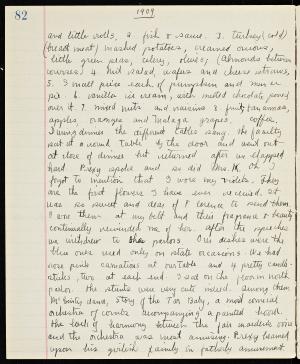 82
1909
and little rolls, 2. fish & sauce. 3. turkey (cold)
(bread meat) mashed potatoes, creamed onions,
little green peas, celery, olives; (Almonds between
courses) 4. Nut salad, wafers and cheese straws,
5. 3 piece each of pumpkin and mince
pie. 6. vanilla ice cream, with melted chocolate poured
over it. 7. mixed nuts and raisins 8. fruit, bananas,
apples, oranges and Malaga grapes, coffee,
During dinner the different tables sang. The faculty
sat at a round table by the door and went out
at close of dinner but returned after we clapped
hard. Prexy spoke and so did Mrs. K. Oh I
forgot to mention that I wore my violets. They
are the first flowers I have ever received. It
was so sweet and dear of Florence to send them.
I wore them at my belt and their fragrance & beauty
continually reminded me of her. After the speeches
we withdrew to the parlors. Our dishes were the
blue ones used only on state occasions. We had
rose pink carnations for our table and 4 pretty candle-
sticks, two at each end. I sat on the floor in north
parlor. The stunts were very cute indeed. Among them
Mc Ginty dance, Story of the Tar Baby, a most comical
orchestra of combs accompanying a painted
The lack of harmony between the fair maiden's voice
and the orchestra was most amusing. Prexy beamed
upon his girlish family in fatherly amusement.